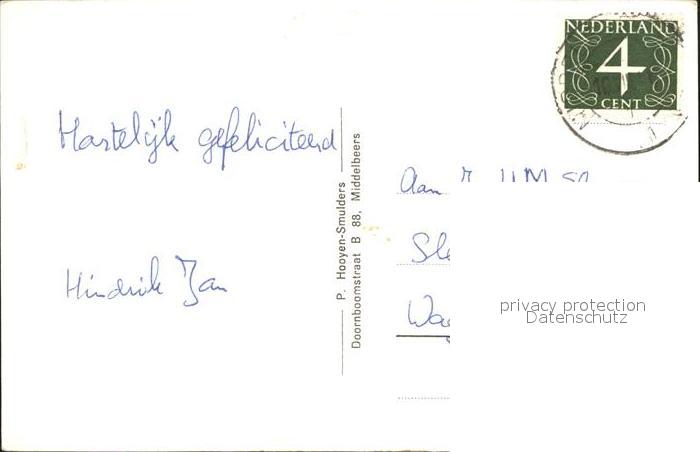 NEDERLAND
4
CENT
Hartelijk gefeliciteerd
Hindrik Jan
P. Hooyen-Smulders
Doornboomstraat B 88, Middelbeers
Aan
privacy protection
Datenschutz